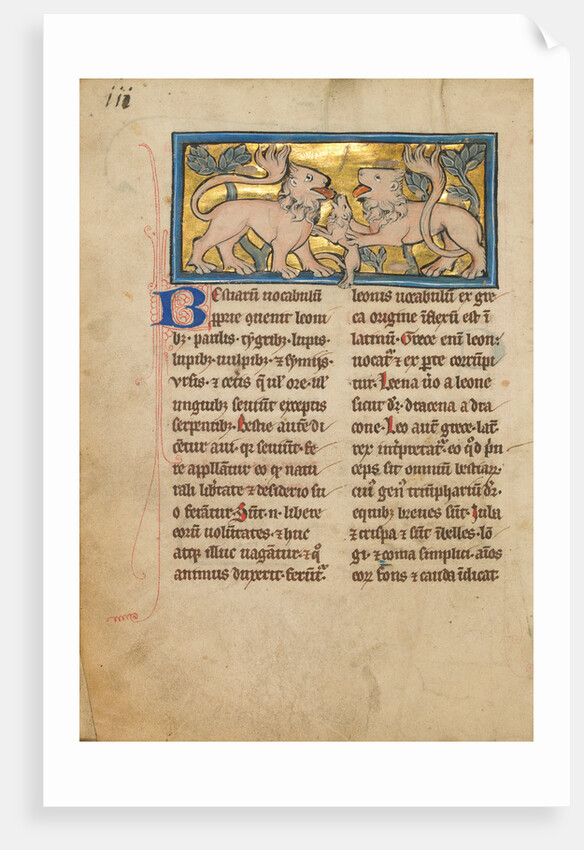 iii
Bestiarū uocabulū
ꝓprie ꝯuenit leoni
bꝫ· pardis· tẏgribꝫ· lupis·
uulpibꝫ· ⁊ sẏmijs·
ursis· ⁊ cet̄is q̄ ul̓ ore· ul̓
unguibꝫ seuiunt exceptis
serpentibꝫ· Bestie autē di
cūtur aui· qꝛ seuiunt· fe
re appllantur eo qꝛ natu
rali libtate ⁊ desiderio su
o ferātur· Sūt· n̄· libere
eorū uolūtates· ⁊ huc
atqꝫ illuc uagātur· ⁊ qͦ
animus duxerit· ferūtͬ·
leonis uocabulū ex gre
ca origine īflexū est ī
latinū· Grece enī leon·
uocatͬ ⁊ ex ꝑte corrūpi
tur· Leena ūo a leone
sicut dr̄· dracena a dra
cone· Leo autē grece· lat̄
rex īnterpretatͬ· eo qͦd p̄n
ceps sit omniū bestiaꝝ·
cuiꝰ genꝰ dr̄·
equibꝫ breues sūt· Iuba
⁊ crispa ⁊ sūt ībelles· lō
gi· ⁊ coma simplici· aīos
eoꝝ frons ⁊ cauda īdicat·